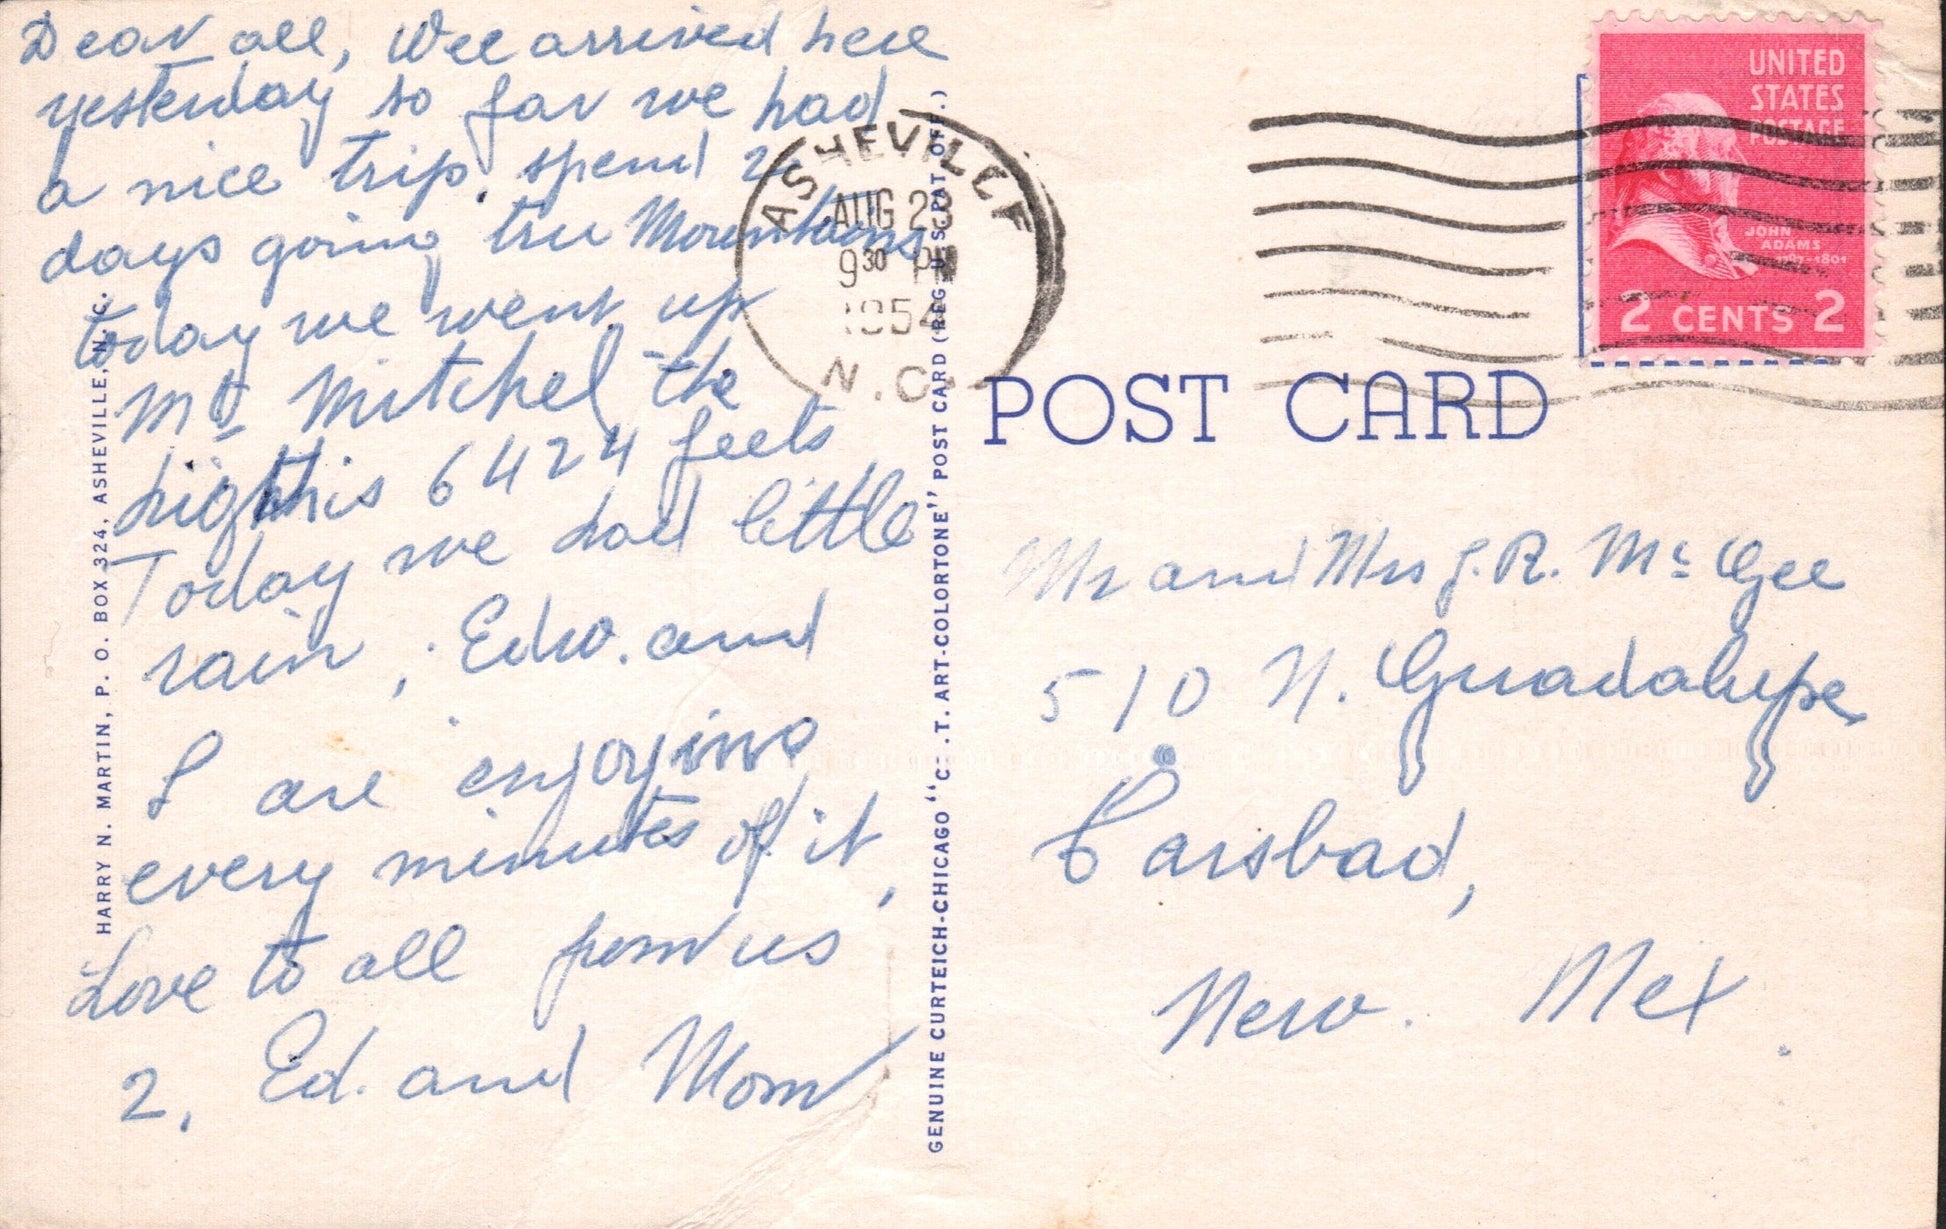 Dear all, Wee arrived here
yesterday so far we had
a nice trip. spend 2
days going tru Mountains
today we went up
Mt Mitchel the
highthis 6424 feets
Today we had little
rain, Edw. and
I are enjoying
every minutes of it,
Love to all from us
2, Ed. and Mom
HARRY N. MARTIN, P. O. BOX 324, ASHEVILLE, N. C.
ASHEVILLE
AUG 23
9 30 PM
1954
N.C.
GENUINE CURTEICH-CHICAGO "C. T. ART-COLORTONE" POST CARD (REG. U.S. PAT. OFF.)
UNITED
STATES
POSTAGE
JOHN
ADAMS
1797-1801
2 CENTS 2
POST CARD
Mr and Mrs J. R. Mc Gee
510 N. Guadalupe
Carsbad,
New. Mex.